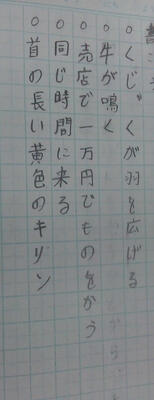 ○くじゃくが羽を広げる
○牛が鳴く
○売店で一万円でものをかう
○同じ時間に来る
○首の長い黄色のキリン